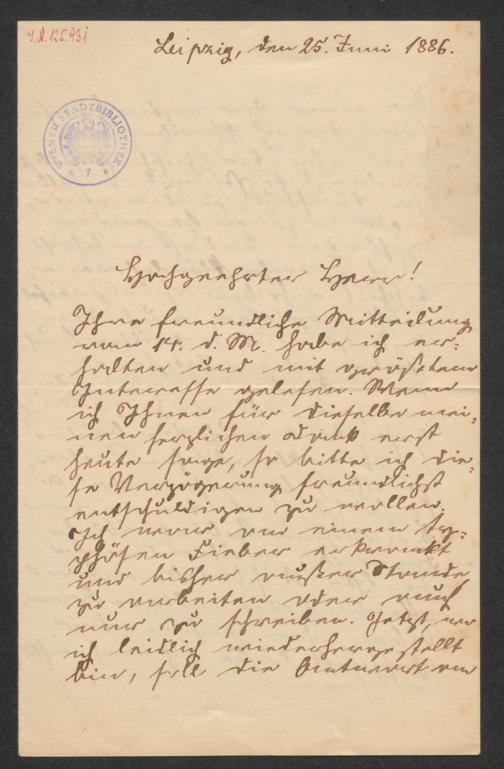 J.N. 125.931
Leipzig, den 25. Juni 1886.
WIENER STADTBIBLIOTHEK
7
Hochgeehrter Herr!
Ihre freundliche Mitteilung
vom 14. d. M. habe ich er-
halten und mit größtem
Interesse gelesen. Wenn
ich Ihnen für dieselbe mei-
nen herzlichen Dank erst
heute sage, so bitte ich die-
se Verzögerung freundlichst
entschuldigen zu wollen.
Ich war an einem ty-
phösen Fieber erkrankt
und bisher außer Stande
zu arbeiten oder auch
nur zu schreiben. Jetzt, wo
ich leidlich wiederhergestellt
bin, soll die Antwort an